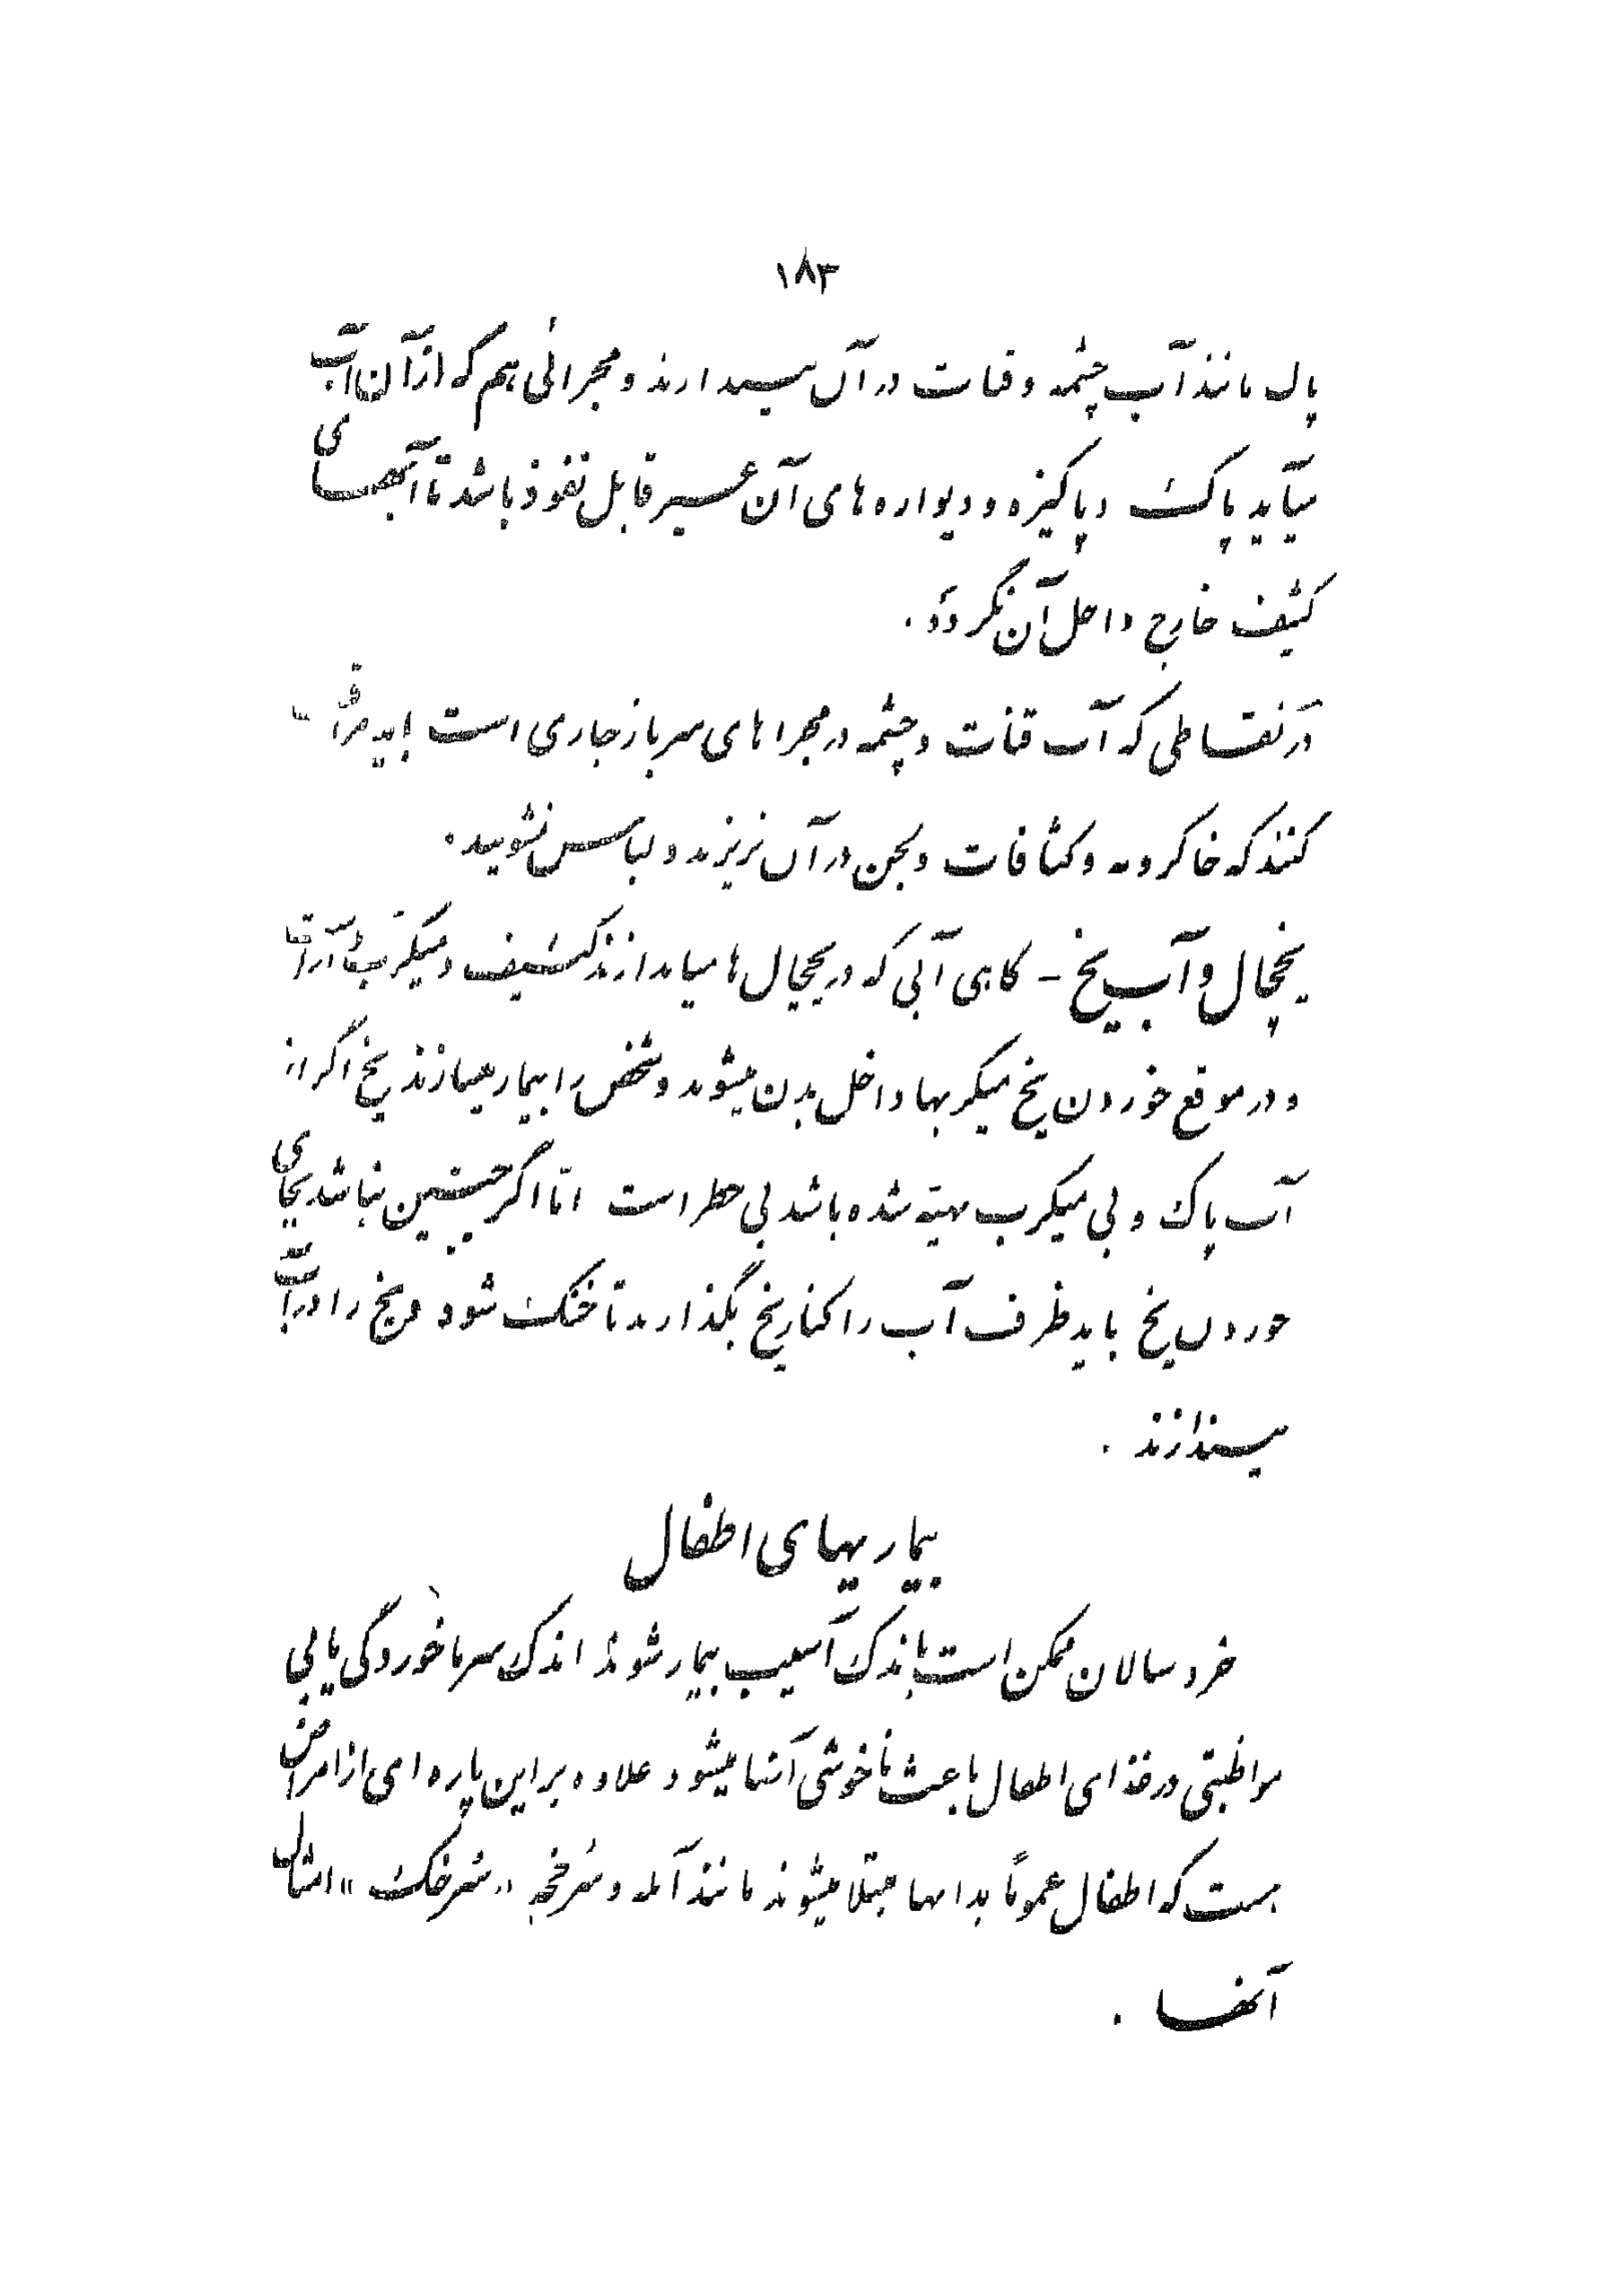 ۱۸۳
پاک مانند آب چشمه و قنات در آن میدارند و مجرائی هم که از آن آب
میآید پاک و پاکیزه و دیواره های آن غیر قابل نفوذ باشد تا آبهای
کثیف خارج داخل آن نگردد .
در نقاطی که آب قنات و چشمه در مجرا های سرباز جاری است باید مراقبت
کنند که خاکروبه و کثافات و لجن در آن نریزند و لباس نشویند .
یخچال و آب یخ – گاهی آبی که در یخچال ها میاندازند کثیف و میکرب دار است
و در موقع خوردن یخ میکربها داخل بدن میشوند و شخص را بیمار میسازند یخ اگر از
آب پاک و بی میکرب تهیّه شده باشد بی خطر است امّا اگر چنین نباشد بجای
خوردن یخ باید ظرف آب را کنار یخ بگذارند تا خنک شود و یخ را در آب
نیندازند .
بیماریهای اطفال
خردسالان ممکن است باندک آسیب بیمار شوند اندک سرماخوردگی یا بی
مواظبتی در غذای اطفال باعث ناخوشی آنها میشود علاوه بر این پاره ای از امراض
هست که اطفال عموماً بدانها مبتلا میشوند مانند آبله و سرخجه «سرخک» و امثال
آنها .